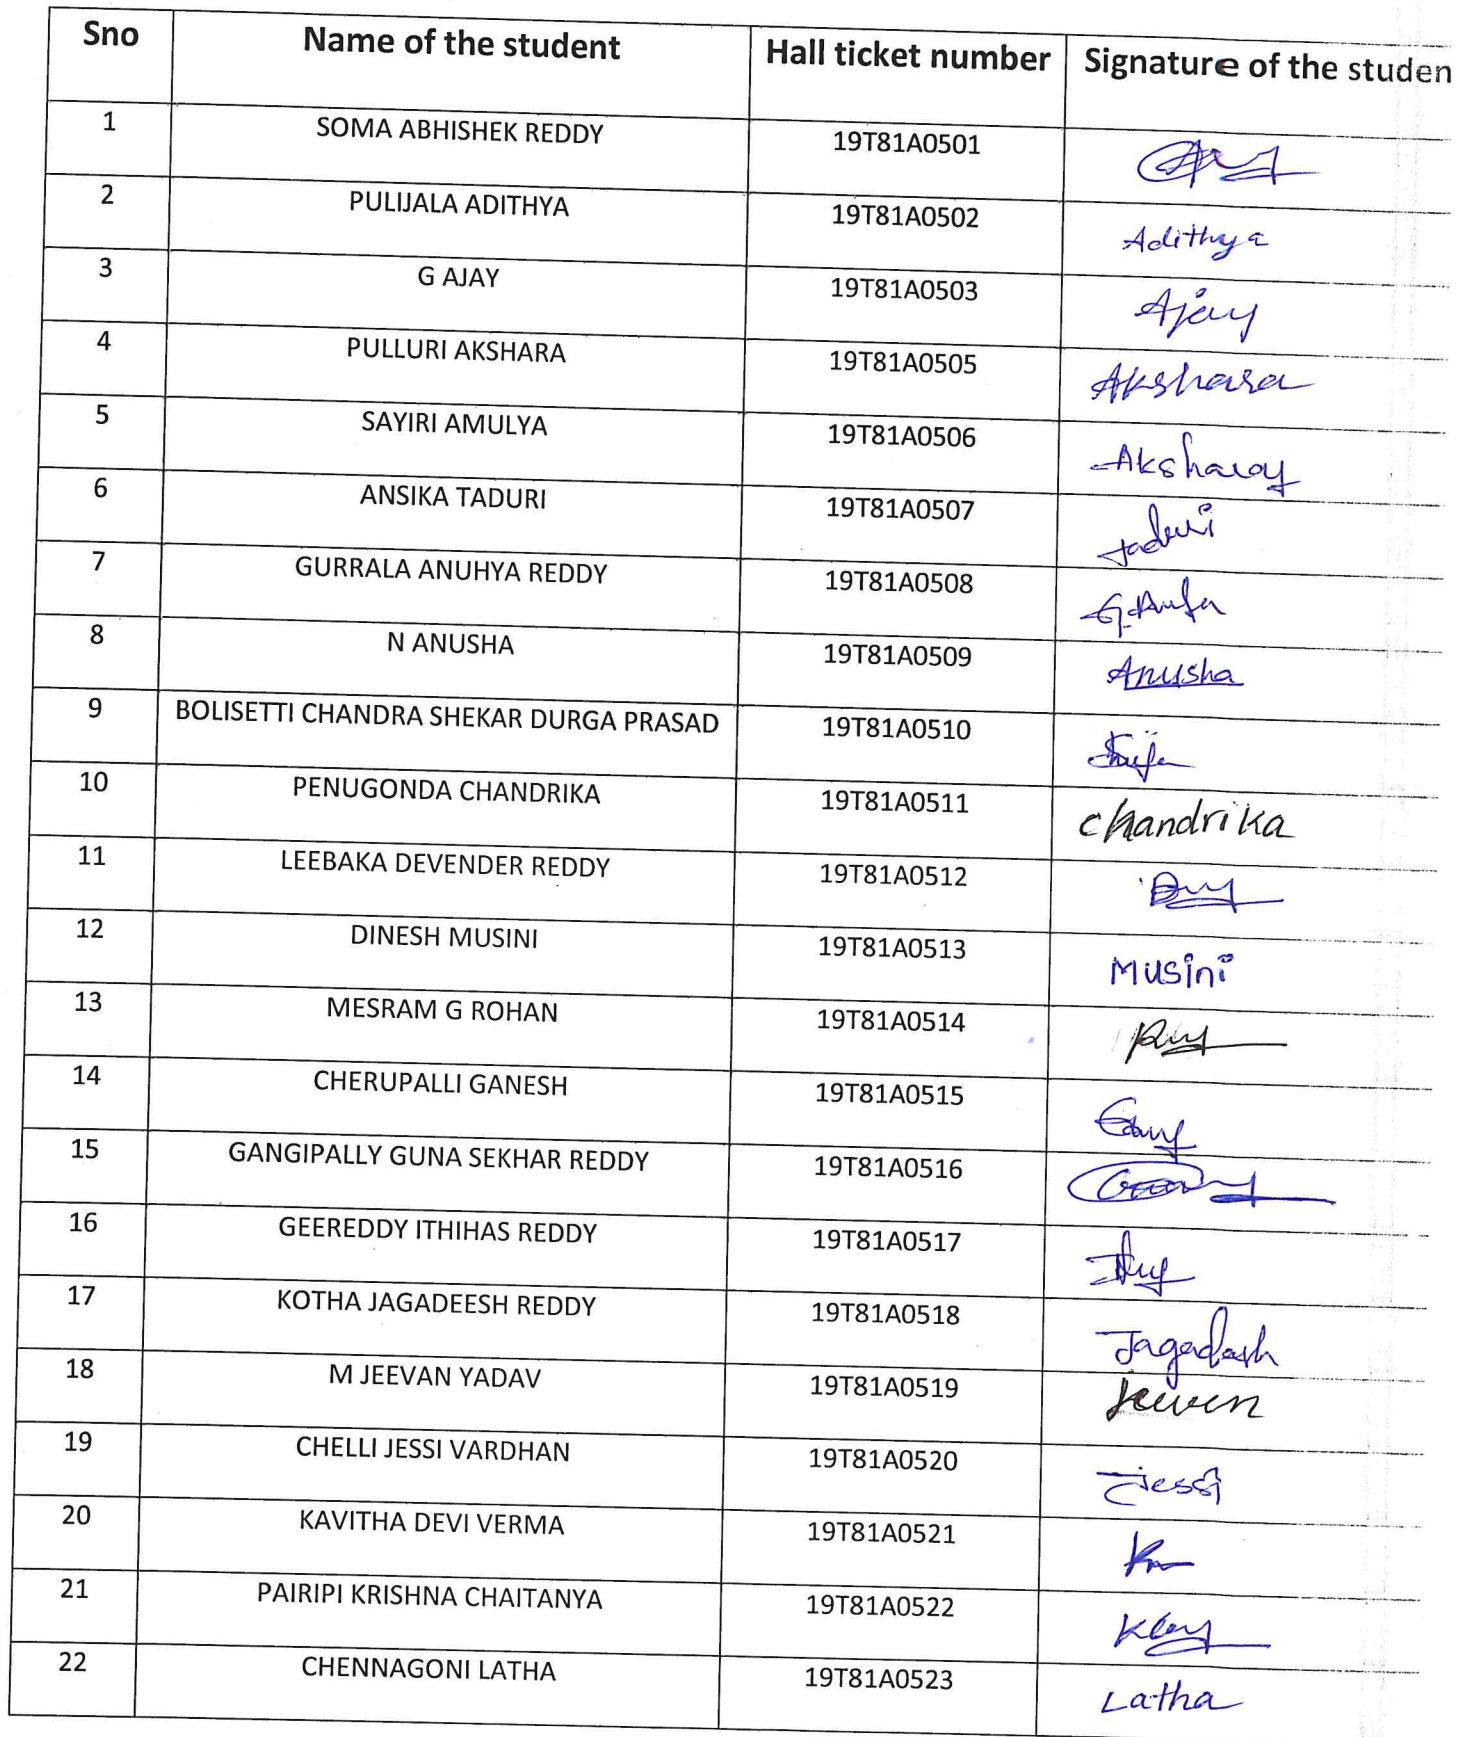 Sno Name of the student Hall ticket number Signature of the studen
1 SOMA ABHISHEK REDDY 19T81A0501
2 PULIJALA ADITHYA 19T81A0502 Adithya
3 G AJAY 19T81A0503 Ajay
4 PULLURI AKSHARA 19T81A0505 Akshara
5 SAYIRI AMULYA 19T81A0506 Aksharay
6 ANSIKA TADURI 19T81A0507 Taduri
7 GURRALA ANUHYA REDDY 19T81A0508
8 N ANUSHA 19T81A0509 Anusha
9 BOLISETTI CHANDRA SHEKAR DURGA PRASAD 19T81A0510
10 PENUGONDA CHANDRIKA 19T81A0511 Chandrika
11 LEEBAKA DEVENDER REDDY 19T81A0512
12 DINESH MUSINI 19T81A0513 Musini
13 MESRAM G ROHAN 19T81A0514
14 CHERUPALLI GANESH 19T81A0515
15 GANGIPALLY GUNA SEKHAR REDDY 19T81A0516
16 GEEREDDY ITHIHAS REDDY 19T81A0517
17 KOTHA JAGADEESH REDDY 19T81A0518 Jagadesh
18 M JEEVAN YADAV 19T81A0519 Jeeven
19 CHELLI JESSI VARDHAN 19T81A0520 Jessi
20 KAVITHA DEVI VERMA 19T81A0521
21 PAIRIPI KRISHNA CHAITANYA 19T81A0522
22 CHENNAGONI LATHA 19T81A0523 Latha